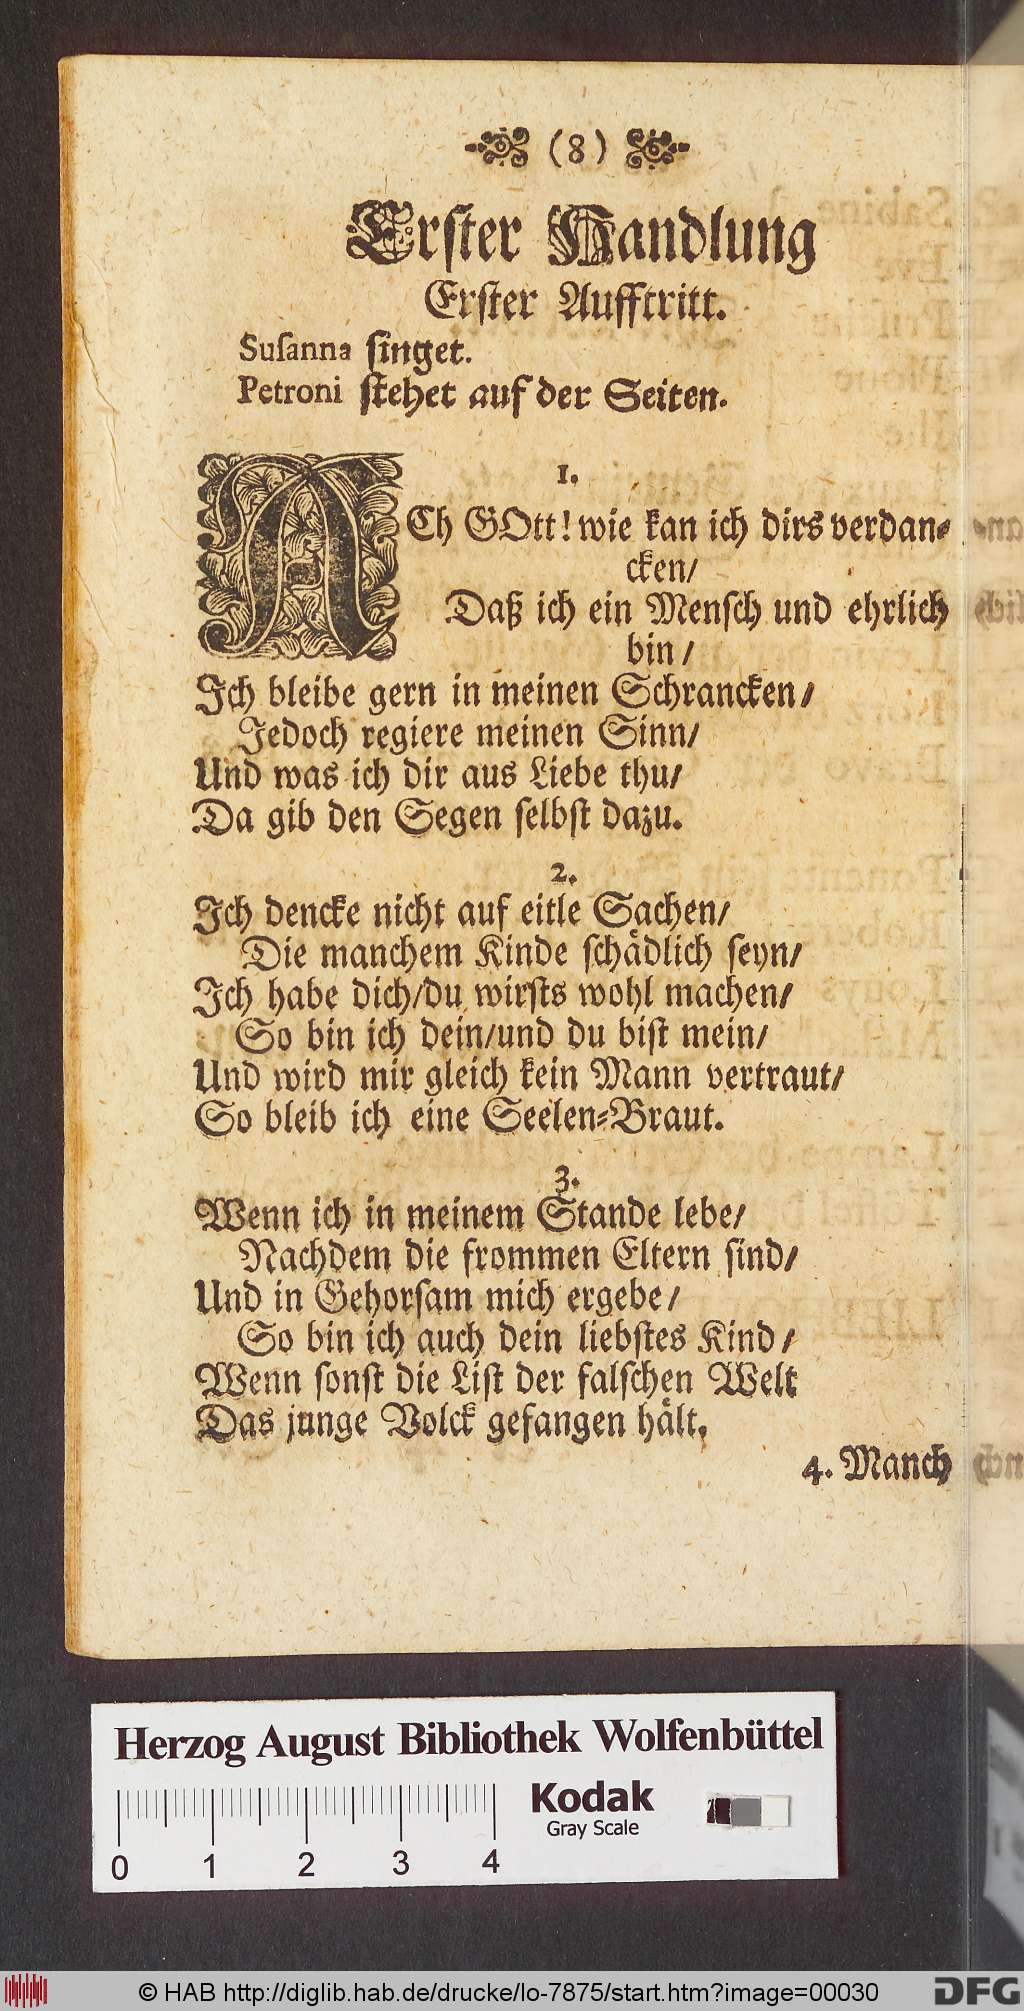 (8)
Erster Handlung
Erster Aufftritt.
Suſanna ſinget.
Petroni ſtehet auf der Seiten.
1.
ACh GOtt! wie kan ich dirs verdan⸗
cken/
Daß ich ein Menſch und ehrlich
bin /
Ich bleibe gern in meinen Schrancken/
Jedoch regiere meinen Sinn/
Und was ich dir aus Liebe thu/
Da gib den Segen ſelbſt dazu.
2.
Ich dencke nicht auf eitle Sachen/
Die manchem Kinde ſchädlich ſeyn/
Ich habe dich/du wirſts wohl machen/
So bin ich dein/und du biſt mein/
Und wird mir gleich kein Mann vertraut/
So bleib ich eine Seelen⸗Braut.
3.
Wenn ich in meinem Stande lebe/
Nachdem die frommen Eltern ſind/
Und in Gehorſam mich ergebe/
So bin ich auch dein liebſtes Kind/
Wenn ſonſt die Liſt der falſchen Welt
Das junge Volck gefangen hält.
4. Manch
Herzog August Bibliothek Wolfenbüttel
Kodak
Gray Scale
0 1 2 3 4
© HAB http://diglib.hab.de/drucke/lo-7875/start.htm?image=00030
DFG